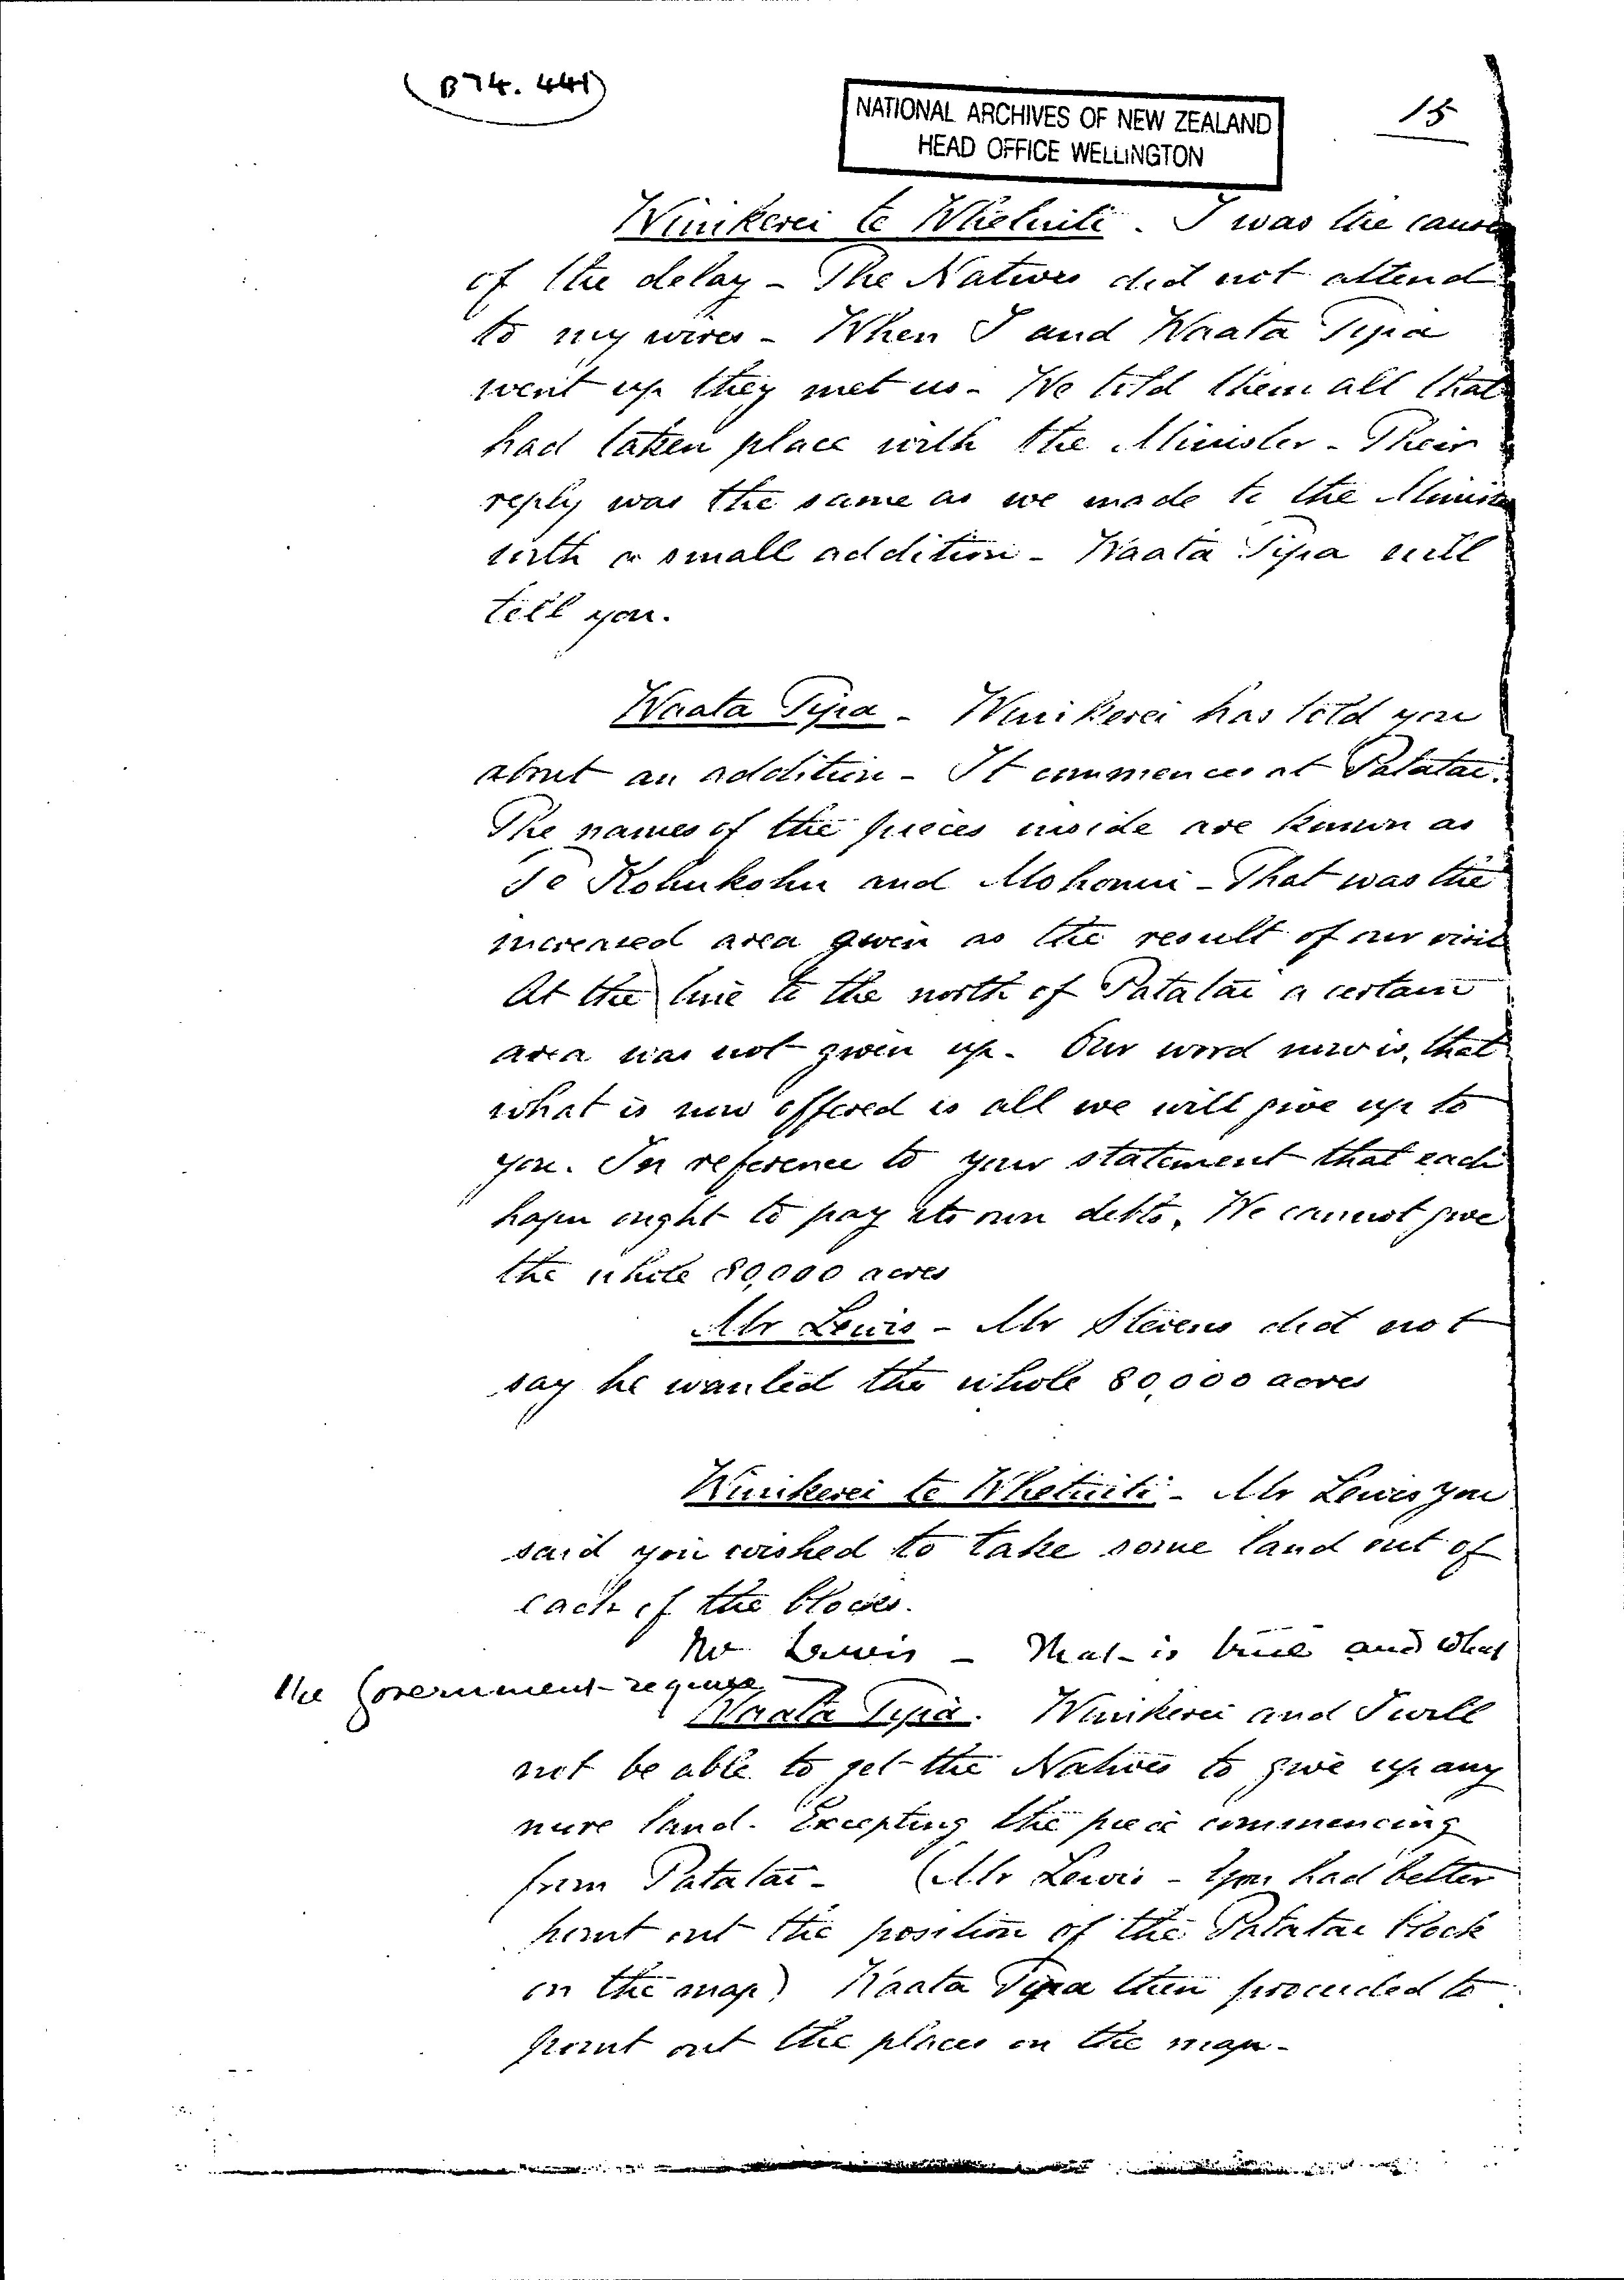 (B74. 441)
NATIONAL ARCHIVES OF NEW ZEALAND
HEAD OFFICE WELLINGTON
15
Winikerei te Whetuiti. I was the cause
of the delay - The Natives did not attend
to my wires - When I and Waata Tipa
went up they met us - We told them all that
had taken place with the Minister - Their
reply was the same as we made to the Minister
with a small addition - Waata Tipa will
tell you.
Waata Tipa - Winikerei has told you
about an addition - It commences at Patatai.
The names of the pieces inside are known as
Te Kohukohu and Mohonui - That was the
increased area given as the result of our visit
At the line to the north of Patatai a certain
area was not given up. Our word now is, that
what is now offered is all we will give up to
you. In reference to your statement that each
hapu ought to pay its own debts, We cannot give
the whole 80,000 acres
Mr Lewis - Mr Stevens did not
say he wanted the whole 80,000 acres
Winikerei te Whetuiti - Mr Lewis you
said you wished to take some land out of
each of the blocks.
Mr Lewis - That is true and what
the Government require
Waata Tipa. Winikerei and I will
not be able to get the Natives to give up any
more land. Excepting the piece commencing
from Patatai - (Mr Lewis - You had better
point out the position of the Patatai block
on the map) Waata Tipa then proceeded to
point out the places on the map -